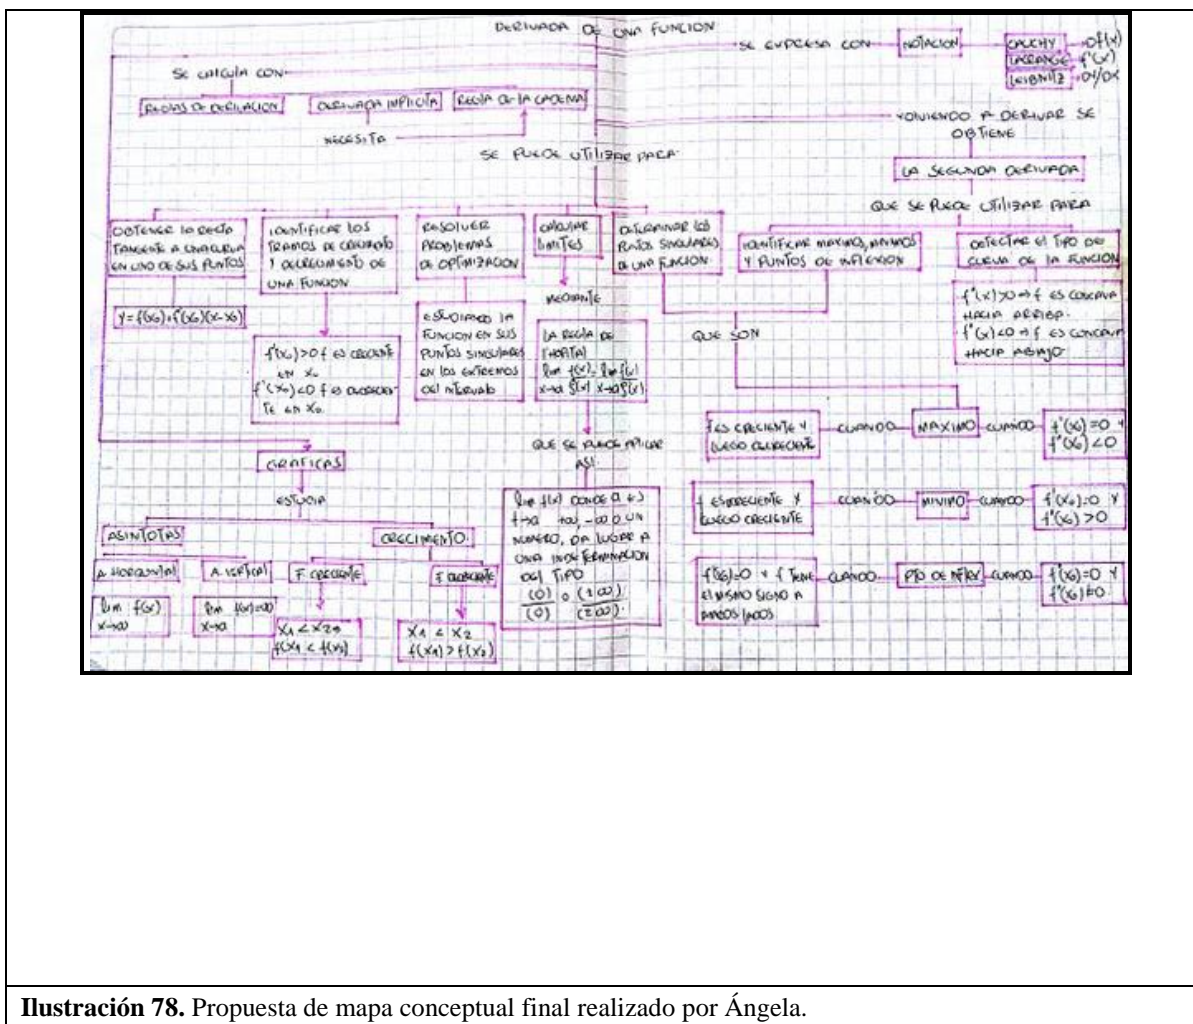 DERIVADA DE UNA FUNCION
SE EXPRESA CON
NOTACION
CAUCHY Df(x)
LAGRANGE f'(x)
LEIBNITZ
SE CALCULA CON
REGLAS DE DERIVACION
DERIVADA IMPLICITA
REGLA DE LA CADENA
NECESITA
VOLVIENDO A DERIVAR SE
OBTIENE
LA SEGUNDA DERIVADA
QUE SE PUEDE UTILIZAR PARA
SE PUEDE UTILIZAR PARA
OBTENER LA RECTA
TANGENTE A UNA CURVA
EN UNO DE SUS PUNTOS
Y=f(x₀)+f'(x₀)(x-x₀)
IDENTIFICAR LOS
TRAMOS DE CRECIMIENTO
Y DECRECIMIENTO DE
UNA FUNCION
f'(x₀)>0 f ES CRECIENTE
EN X₀
f'(x₀)<0 f ES DECRECIEN-
TE EN X₀
RESOLVER
PROBLEMAS
DE OPTIMIZACION
ESTUDIANDO LA
FUNCION EN SUS
PUNTOS SINGULARES
EN LOS EXTREMOS
DEL INTERVALO
CALCULAR
LIMITES
MEDIANTE
LA REGLA DE
L'HOPITAL
QUE SE PUEDE APLICAR
ASI
lim f(x) DONDE a ES
+∞, -∞ O UN
NUMERO, DA LUGAR A
UNA INDETERMINACION
DEL TIPO
(0) o (±∞)
(0) (±∞)
DETERMINAR LOS
PUNTOS SINGULARES
DE UNA FUNCION
IDENTIFICAR MAXIMOS, MINIMOS
Y PUNTOS DE INFLEXION
DETECTAR EL TIPO DE
CURVA DE LA FUNCION
f''(x)>0 → f ES CONCAVA
HACIA ARRIBA.
f''(x)<0 → f ES CONCAVA
HACIA ABAJO
QUE SON
f ES CRECIENTE Y
LUEGO DECRECIENTE
CUANDO
MAXIMO
CUANDO
f'(x₀)=0 Y
f''(x₀)<0
f ES DECRECIENTE Y
LUEGO CRECIENTE
CUANDO
MINIMO
CUANDO
f'(x₀)=0 Y
f''(x₀)>0
f'(x₀)=0 Y f' TIENE
EL MISMO SIGNO A
AMBOS LADOS
CUANDO
PTO DE INFLEX
CUANDO
GRAFICAS
ESTUDIA
ASINTOTAS
CRECIMIENTO
A. HORIZONTAL
A. VERTICAL
F. CRECIENTE
F. DECRECIENTE
lim f(x)
x→∞
lim f(x)=∞
x→a
X₁ < X₂
f(X₁ < f(X₂)
X₁ < X₂
f(X₁) > f(X₂)
Ilustración 78. Propuesta de mapa conceptual final realizado por Ángela.